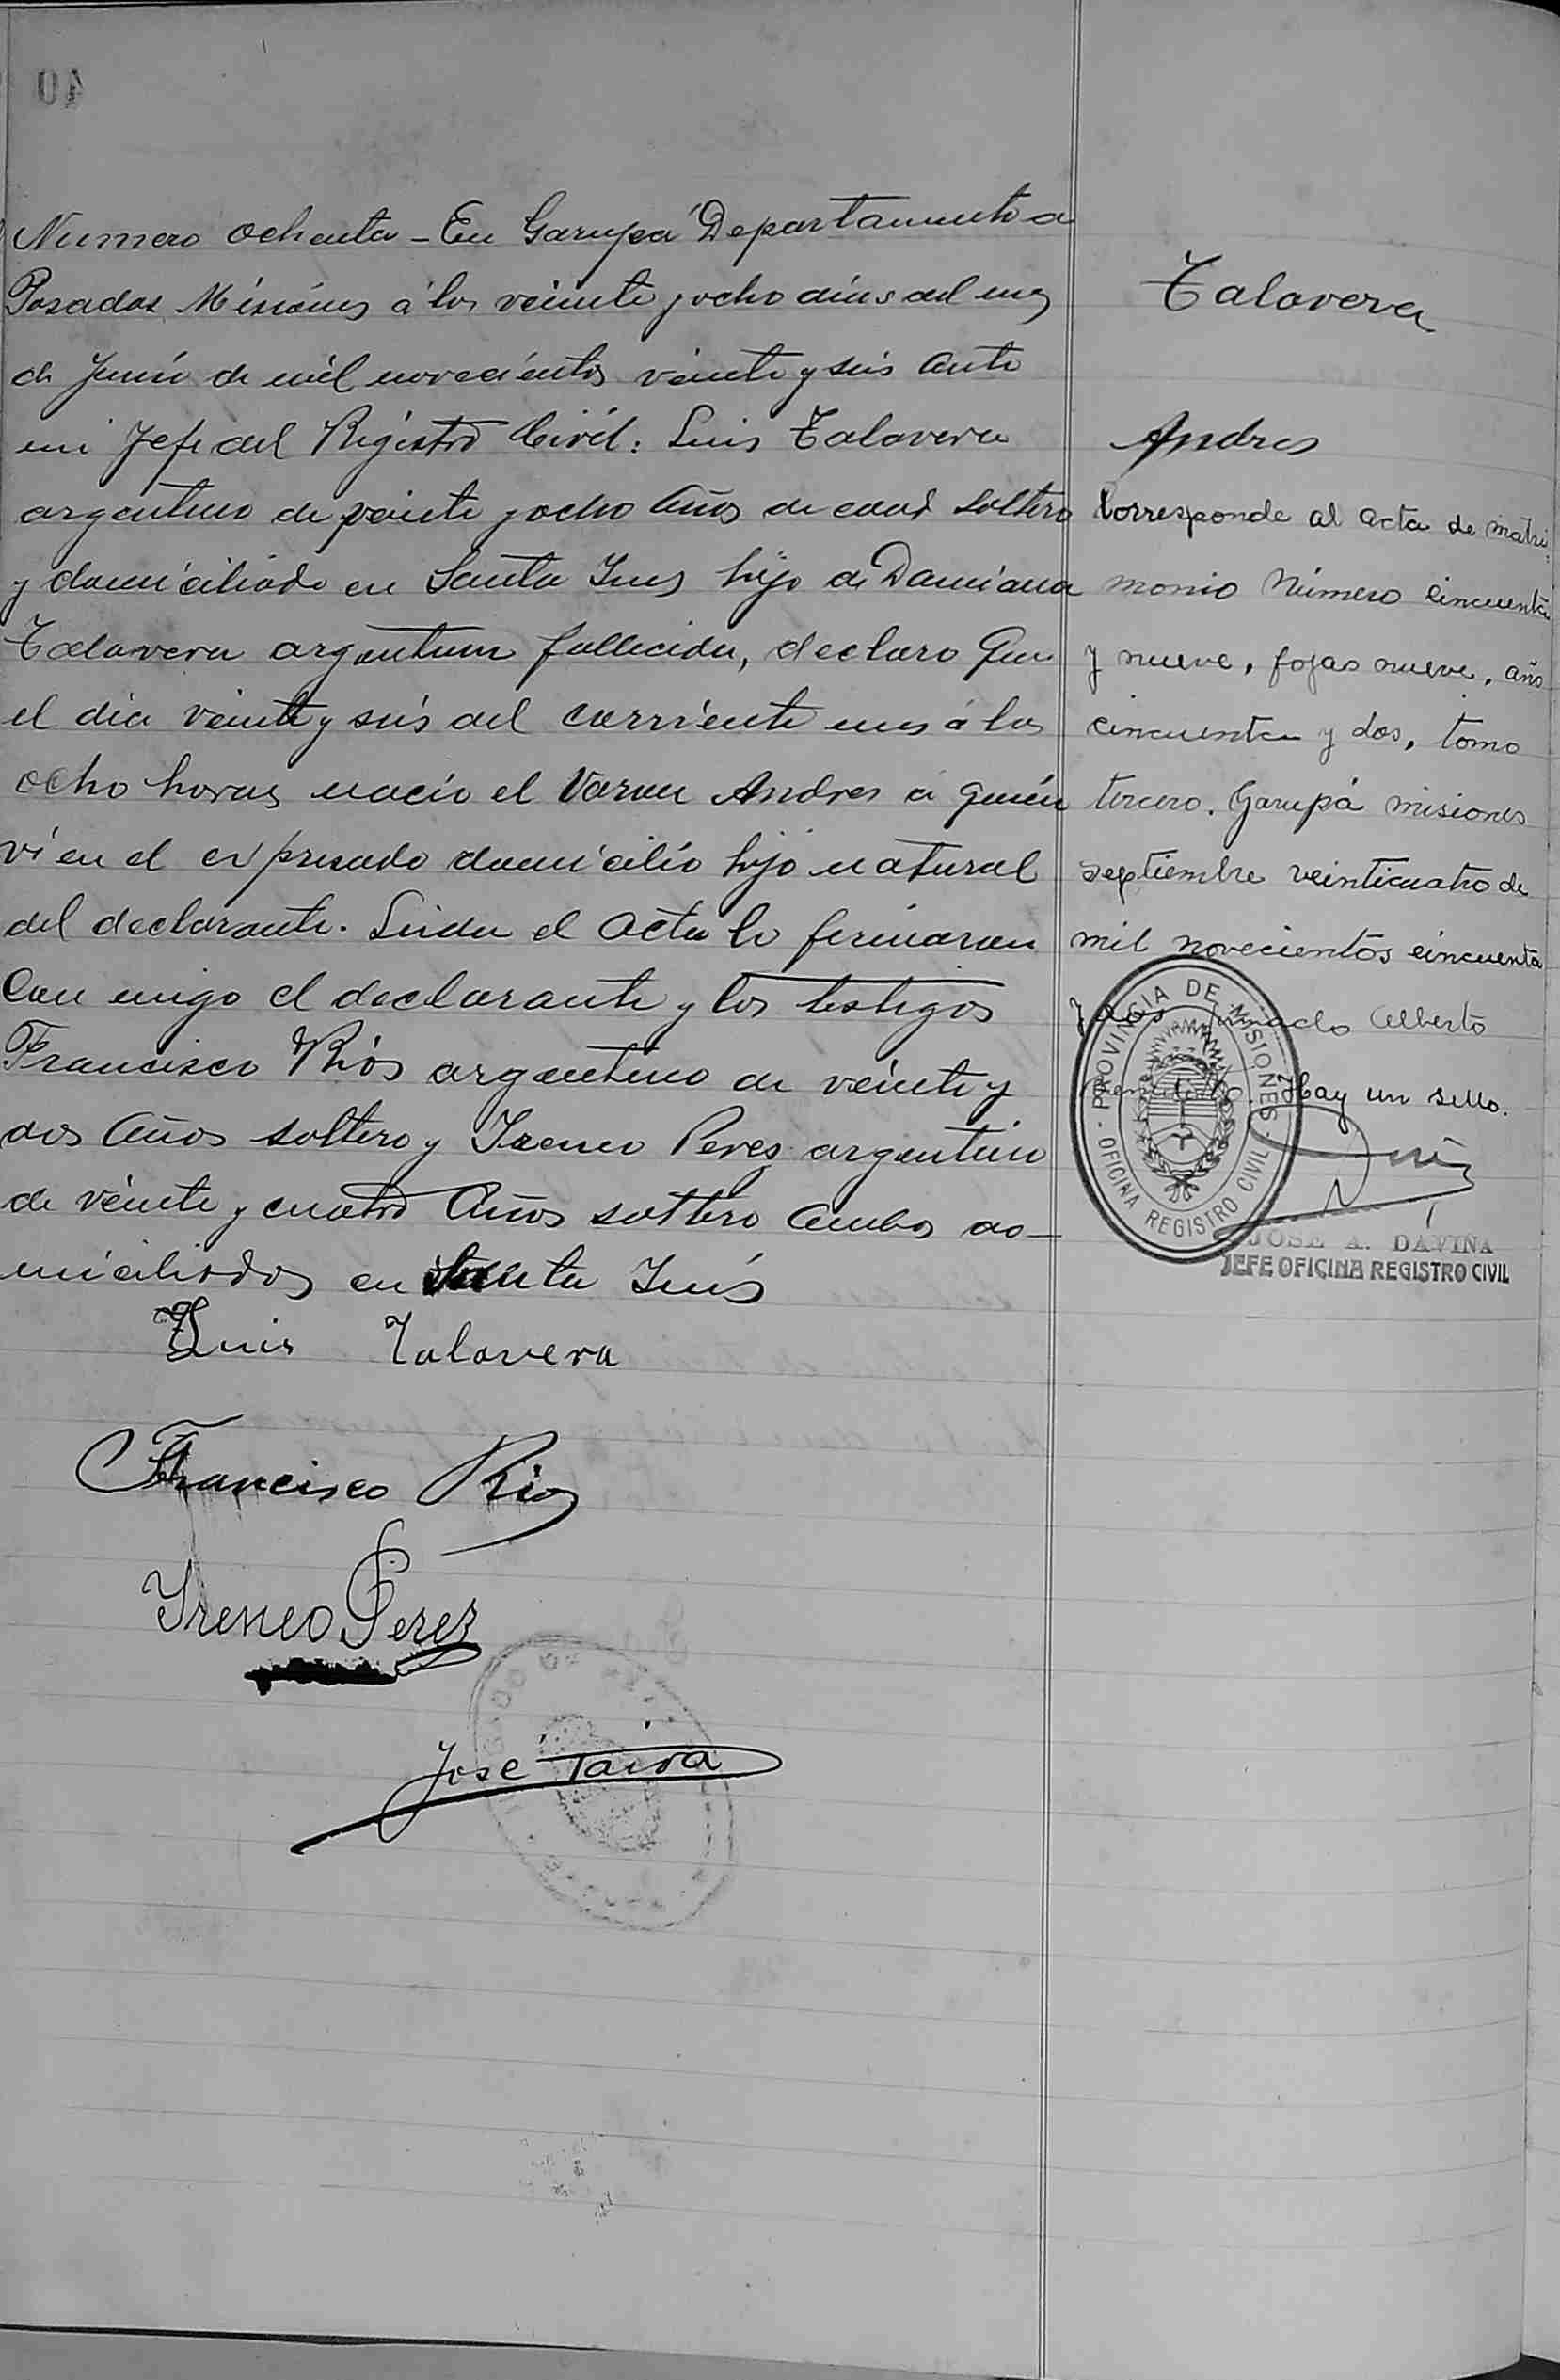 Numero ochenta - En Garupá Departamento a
Posadas Misiones á los veinte y ocho dias del mes
de Junio de mil novecientos veinte y seis ante
mi Jefe del Registro Civil: Luis Talavera
argentino de veinte y ocho Años de edad soltero
y domiciliado en Santa Ines hijo de Damiana
Talavera argentina fallecida, declaro Que
el dia veinte y seis del corriente mes á las
ocho horas nacio el Varon Andres a quién
ví en el expresado domicilio hijo natural
del declarante. Leida el Acta lo firmaron
Con migo el declarante y los testigos
Francisco Riós argentino de veinte y
dos Años soltero y Ireneo Perez argentino
de veinte y cuatro Años soltero Ambos do-
miciliados en Santa Inés
Luis Talavera
Francisco Rios
Ireneo Perez
José
Talavera
Andres
Corresponde al acta de matri-
monio Número cincuenta
y nueve, fojas nueve, año
cincuenta y dos, tomo
tercero. Garupá misiones
septiembre veinticuatro de
mil novecientos cincuenta
y dos Alberto
Hay un sello.
PROVINCIA DE MISIONES
OFICINA REGISTRO CIVIL
JOSE A. DAVIÑA
JEFE OFICINA REGISTRO CIVIL